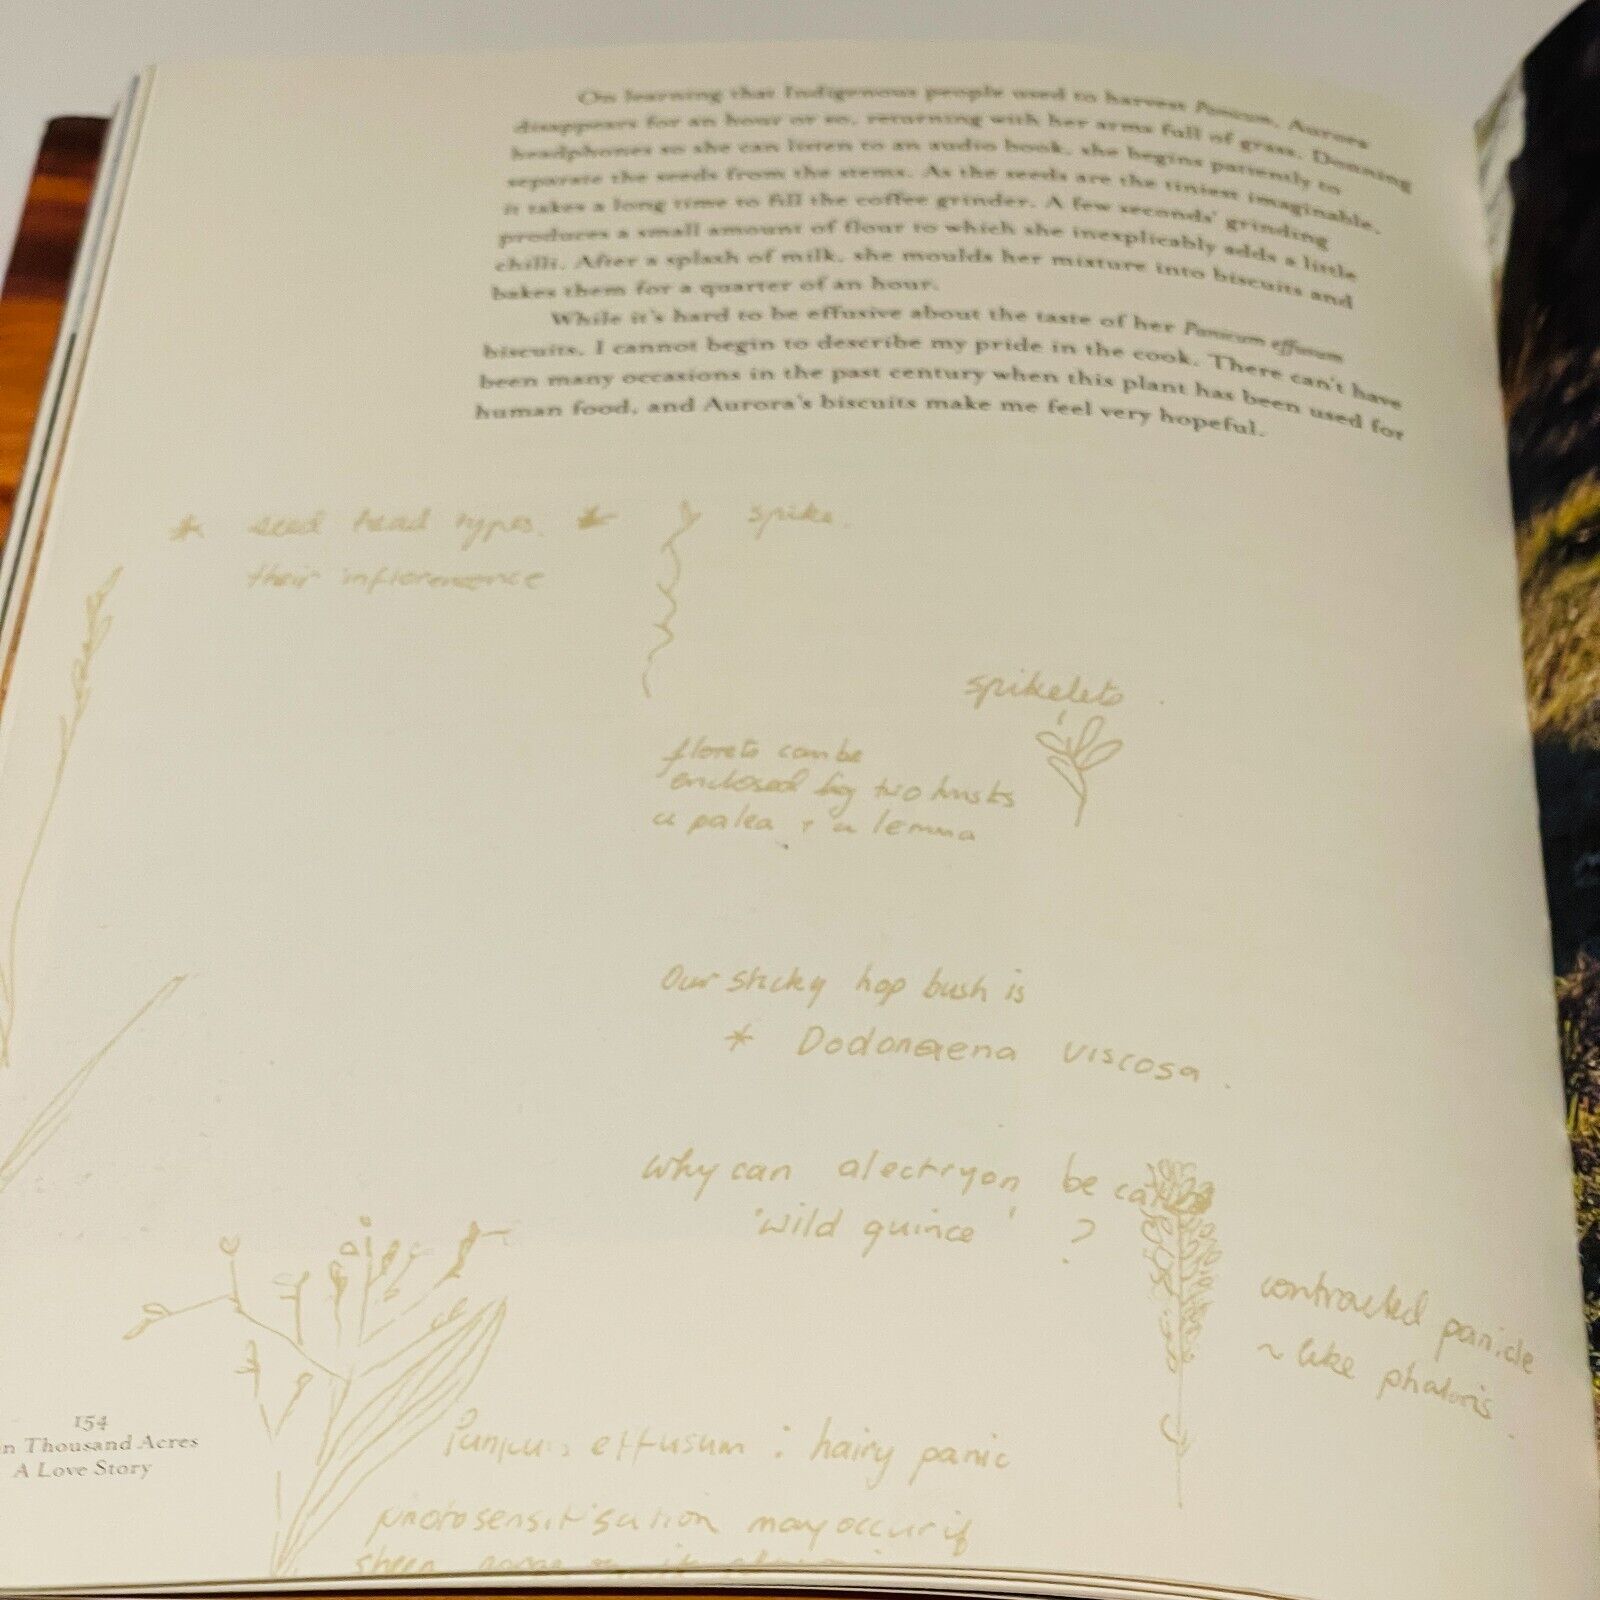 On learning that Indigenous people used to harvest Panicum, Aurora
disappears for an hour or so, returning with her arms full of grass. Donning
headphones so she can listen to an audio book, she begins patiently to
separate the seeds from the stems. As the seeds are the tiniest imaginable,
it takes a long time to fill the coffee grinder. A few seconds' grinding
produces a small amount of flour to which she inexplicably adds a little
chilli. After a splash of milk, she moulds her mixture into biscuits and
bakes them for a quarter of an hour.
While it's hard to be effusive about the taste of her Panicum effusum
biscuits, I cannot begin to describe my pride in the cook. There can't have
been many occasions in the past century when this plant has been used for
human food, and Aurora's biscuits make me feel very hopeful.
* seed head types. *
spike.
their inflorescence
spikelets.
florets can be
enclosed by two husks
a palea + a lemma
Our sticky hop bush is
* Dodonaena viscosa.
Why can alectryon be
'wild quince' ?
contracted panicle
~ like phalaris
effusum : hairy panic
photosensitisation may occur if
sheep
154
n Thousand Acres
A Love Story